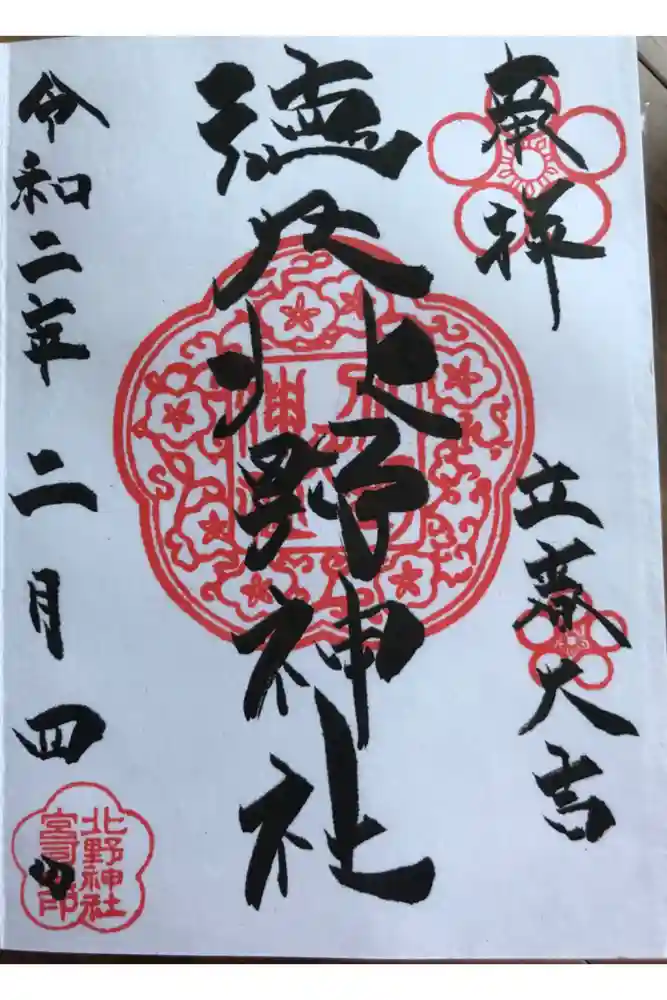 奉拝
立春大吉
徳丸北野神社
令和二年二月四日
北野神社
宮司之印